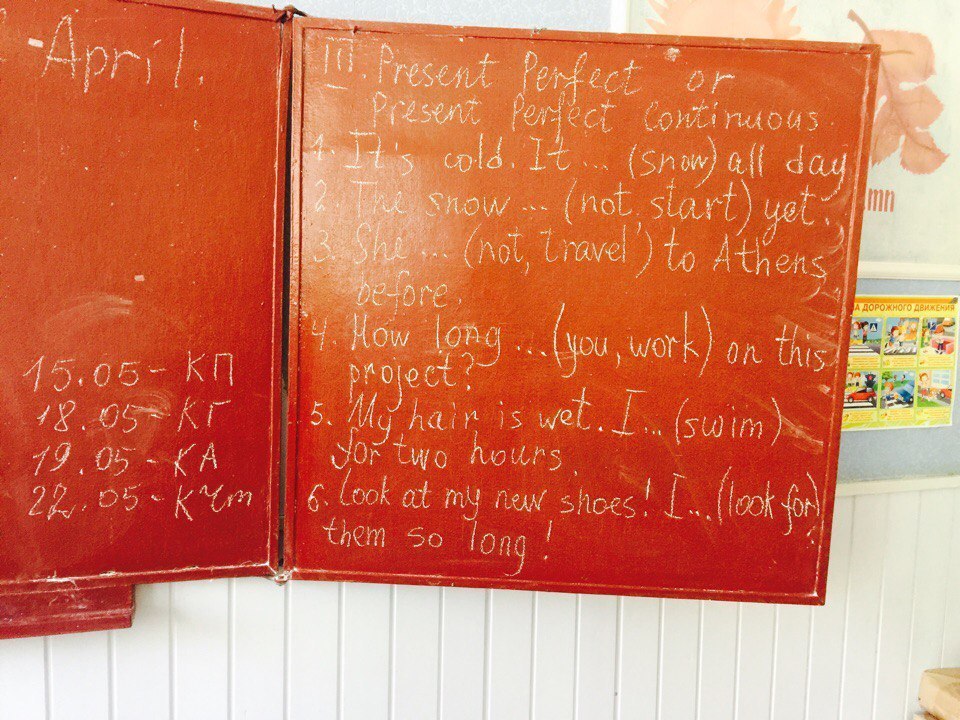 April.
15.05 - КП
18.05 - КГ
19.05 - КА
22.05 - Кчт
III. Present Perfect or
Present Perfect Continuous.
1. It's cold. It ... (snow) all day
2. The snow ... (not, start) yet.
3. She ... (not, travel) to Athens
before.
4. How long ... (you, work) on this
project?
5. My hair is wet. I ... (swim)
for two hours.
6. Look at my new shoes! I ... (look for)
them so long!
А ДОРОЖНОГО ДВИЖЕНИЯ